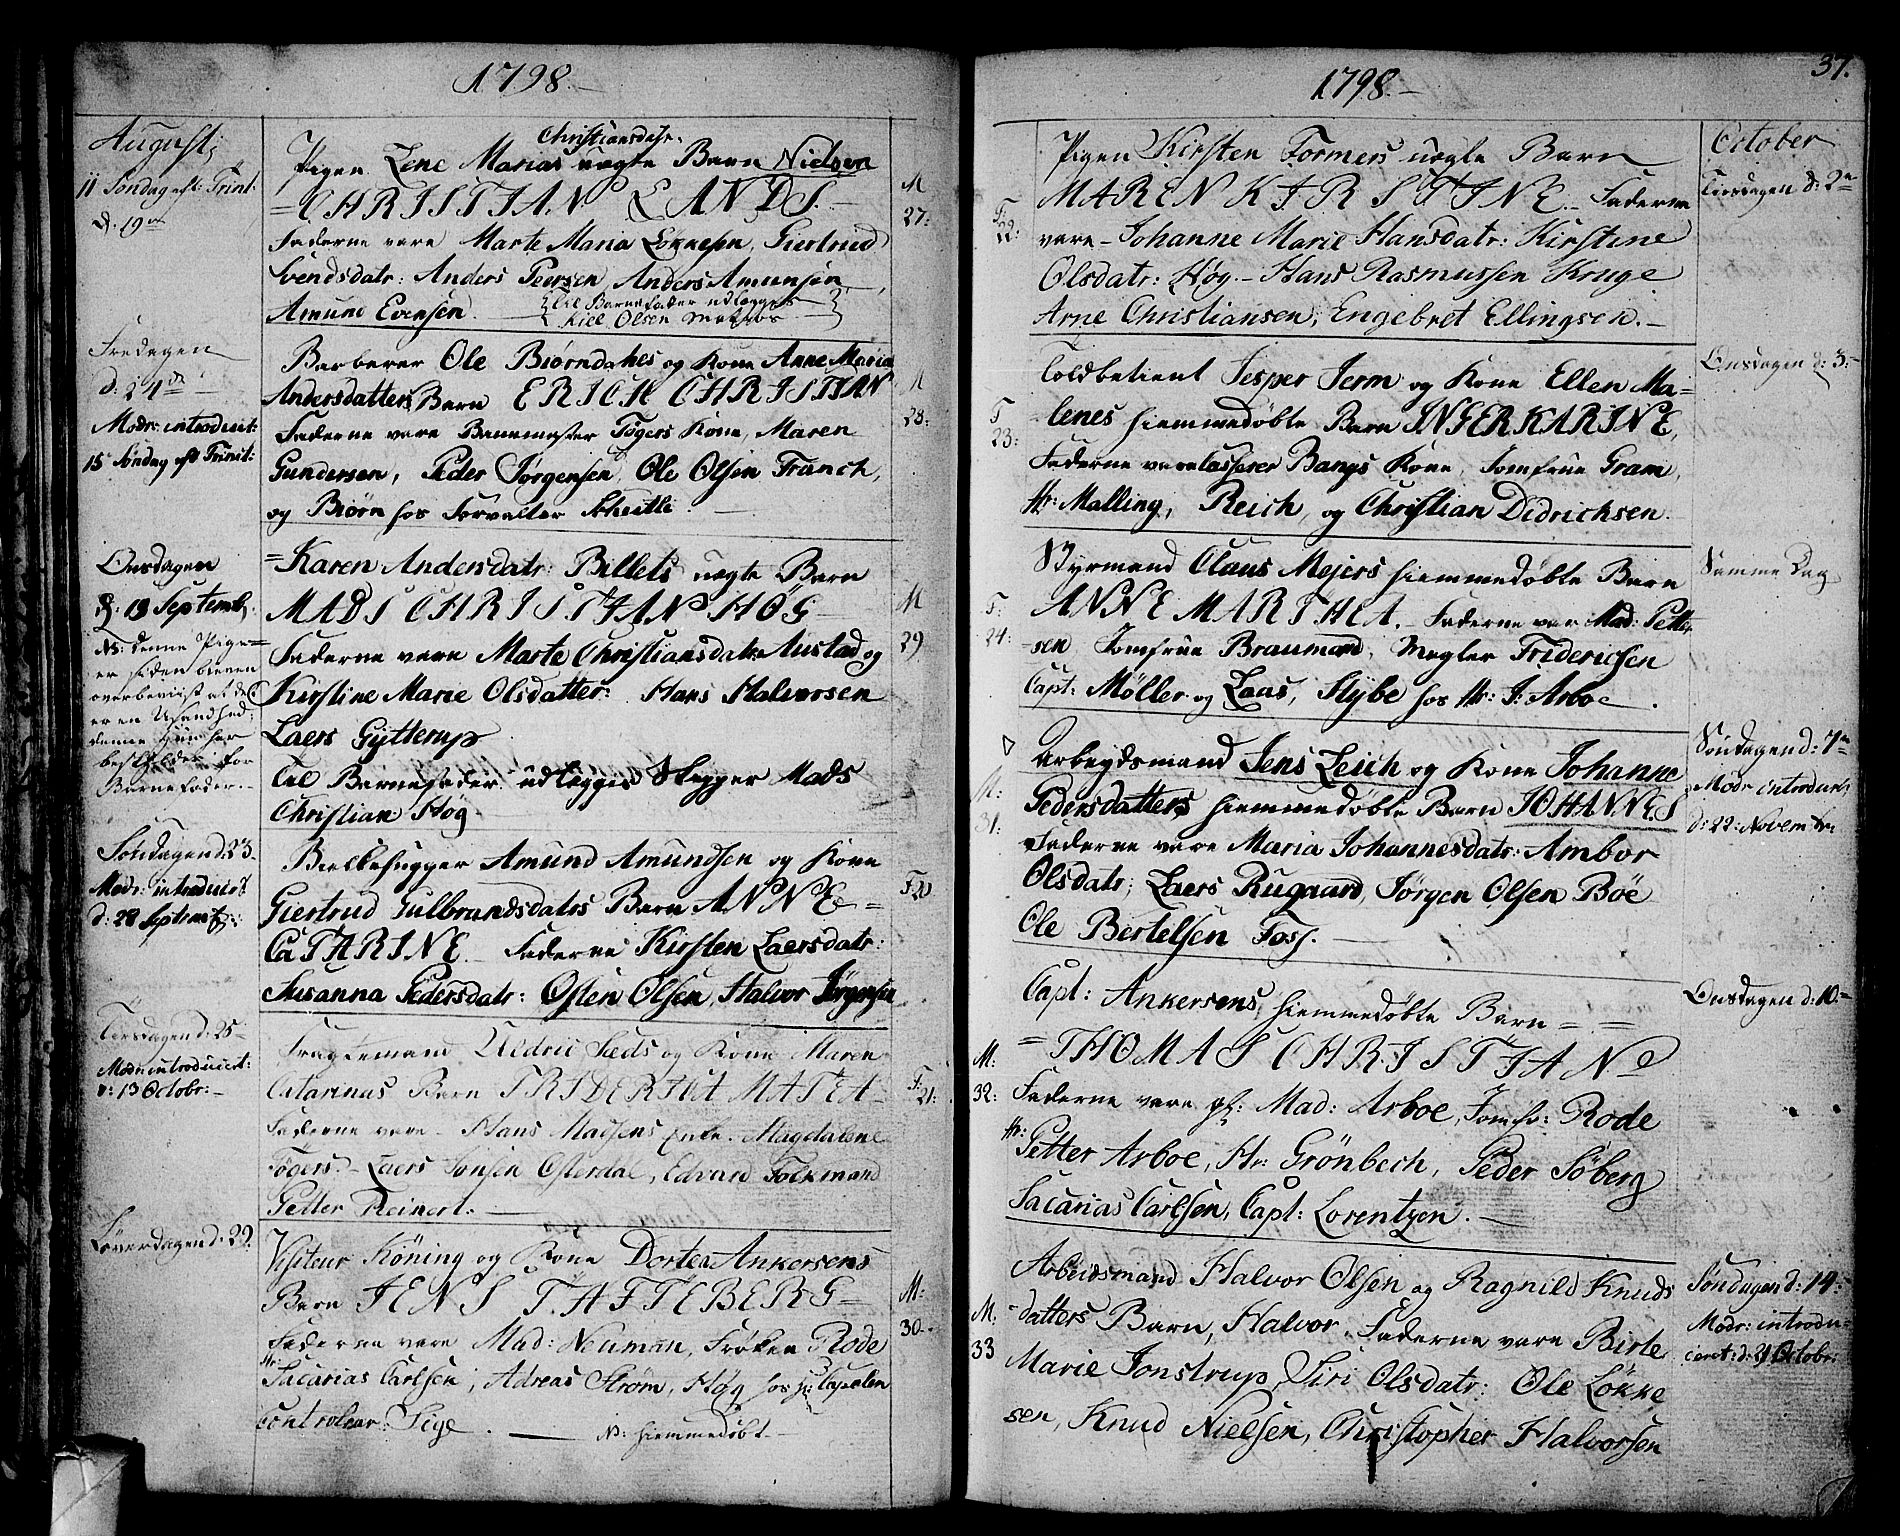 1798.
August;
11 Søndag eft: Trinit:
d. 19de
Christiansdatr.
Pigen Lene Marias uægte Barn Nielsen
=CHRISTIAN LANDS.
M
27:
Fadderne vare Marte Maria Løkkesen, Giertrud
Svendsdatr: Anders Peersen, Anders Amunsen,
Amund Evensen.
Til Barnefader udlægges
Kiel Olsen Matros
Fredagen
d: 24de
Modr: introducit:
15 Søndag eft Trinit:
Barberer Ole Biørndahls og Kone Anne Maria
Andersdatters Barn ERICH CHRISTIAN
M
28:
Fadderne vare Banemester Tøgers Kone, Maren
Gundersen, Peder Jørgensen, Ole Olsen Franch,
og Biørn hos Forvalter Scheitli.
Onsdagen
d: 19 Septemb.
NB: denne Pige
er siden bleven
overbeviist at det
er en Usandhed
denne hun har
beskyldet for
Barnefader.
=Karen Andersdatr: Billets uægte Barn
MADS CHRISTIAN HØG
M
29.
Fadderne vare Marte Christiansdatr: Austad og
Kirstine Marie Olsdatter: Hans Halvorsen
Laers Gytterup
Til Barnefader udlægges Skipper Mads
Christian Høg
Søndagen d: 23
Modr: introducirt
d: 28 Septembr:
Bielkehugger Amund Amundsen og Kone
Giertrud Gulbrandsdatrs Barn ANNE=
F. 20
CATHARINE. Fadderne Kirsten Laersdatr:
Susanna Pedersdatr: Osten Olsen, Halvor Jørgensen
Tirsdagen d: 25
Modr: introduciert:
d: 13 Octobr:
Fragtemand Uldric Seds og Kone Maren
Catarinas Barn FRIDERICA MATEA
F:
21:
Fadderne vare Hans Madsens Enke. Magdalene
Tøgers. Laers Jonsen Osterdal, Edvard Folkmand
Petter Reinert.
Løverdagen d. 29.
Visiteur Köning og Kone Dortea Ankersens
Barn JENS TAFTEBERG
M:
30.
Fadderne vare Mad: Neuman, Frøken Rode
Hr: Sacarias Carlsen, Adreas Strøm, Høg hos Hr: Capelen
Controleur Lige.
NB: hiemmedøbt
1798.
37.
October
Tirsdagen d: 2n
Pigen Kirsten Formers uægte Barn
MAREN KIRSTINE. Fadderne
F:
22:
vare Johanne Marie Hansdatr: Kirstine
Olsdatr: Høg. Hans Rasmussen Kruge
Arne Christiansen, Engebret Ellingsen.
Onsdagen d: 3.
Toldbetient Jesper Jerm og Kone Ellen Ma-
lenes hiemmedøbte Barn INGER KARINE,
F
23:
Fadderne vare Casserer Bangs Kone, Jomfrue Gram,
Hr: Malling, Reich, og Christian Didrichsen.
Samme Dag
Styrmand Claus Mejers hiemmedøbte Barn
ANNE MARTHA. Fadderne var Mad: Petter
F:
24:
sen Jomfrue Braumand, Megler Friderichsen
Capt: Møller og Laas, Hybe hos Hr: J: Arboe.
Søndagen d: 7n
Modr introduciert
d: 22 Novembr:
Arbeydsmand Jens Leich og Kone Johanne
Pedersdatters hiemmedøbte Barn JOHANNES
M:
31:
Fadderne vare Maria Johannesdatr: Ambor
Olsdatr; Laers Rugaard, Jørgen Olsen Böe
Ole Bertelsen Foss.
Onsdagen d: 10
Capt: Ankersens hiemmedøbte Barn = =
=THOMAS CHRISTIAN
M:
32:
Fadderne vare gl: Mad: Arboe, Jomfr: Rode
Hr: Petter Arboe, Hr: Grönbech, Peder Söberg
Sacarias Carlsen, Capt: Lorentzen.
Søndagen d: 14
Modr: introdu-
ceret: d: 21 Octobr:
Arbeidsmand Halvor Olsen og Ragnild Knuds
datters Barn, Halvor. Fadderne vare Birte
M.
33
Marie Jonstrup, Siri Olsdatr: Ole Løkke
sen, Knud Nielsen, Christopher Halvorsen